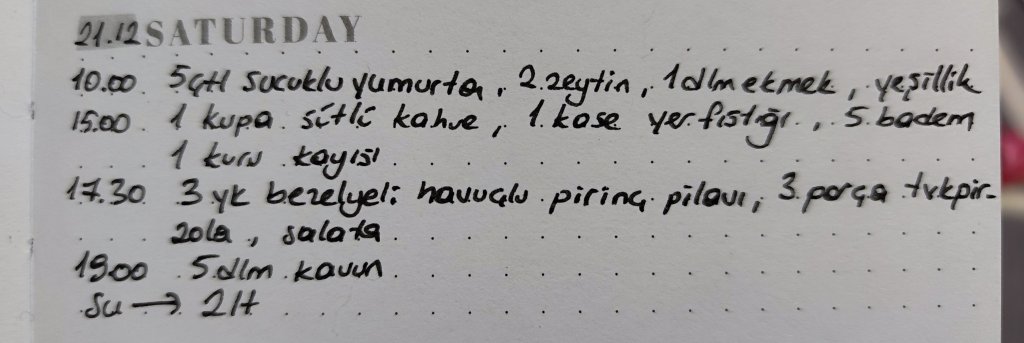 21.12 SATURDAY
10.00 5çtl sucuklu yumurta, 2 zeytin, 1 dlm ekmek, yeşillik
15.00 1 kupa sütlü kahve, 1 kase yer fıstığı, 5 badem
1 kuru kayısı
17.30 3 yk bezelyeli havuçlu pirinç pilavı, 3 parça tvkpir-
zola, salata
19.00 5 dlm kavun
Su → 2 lt